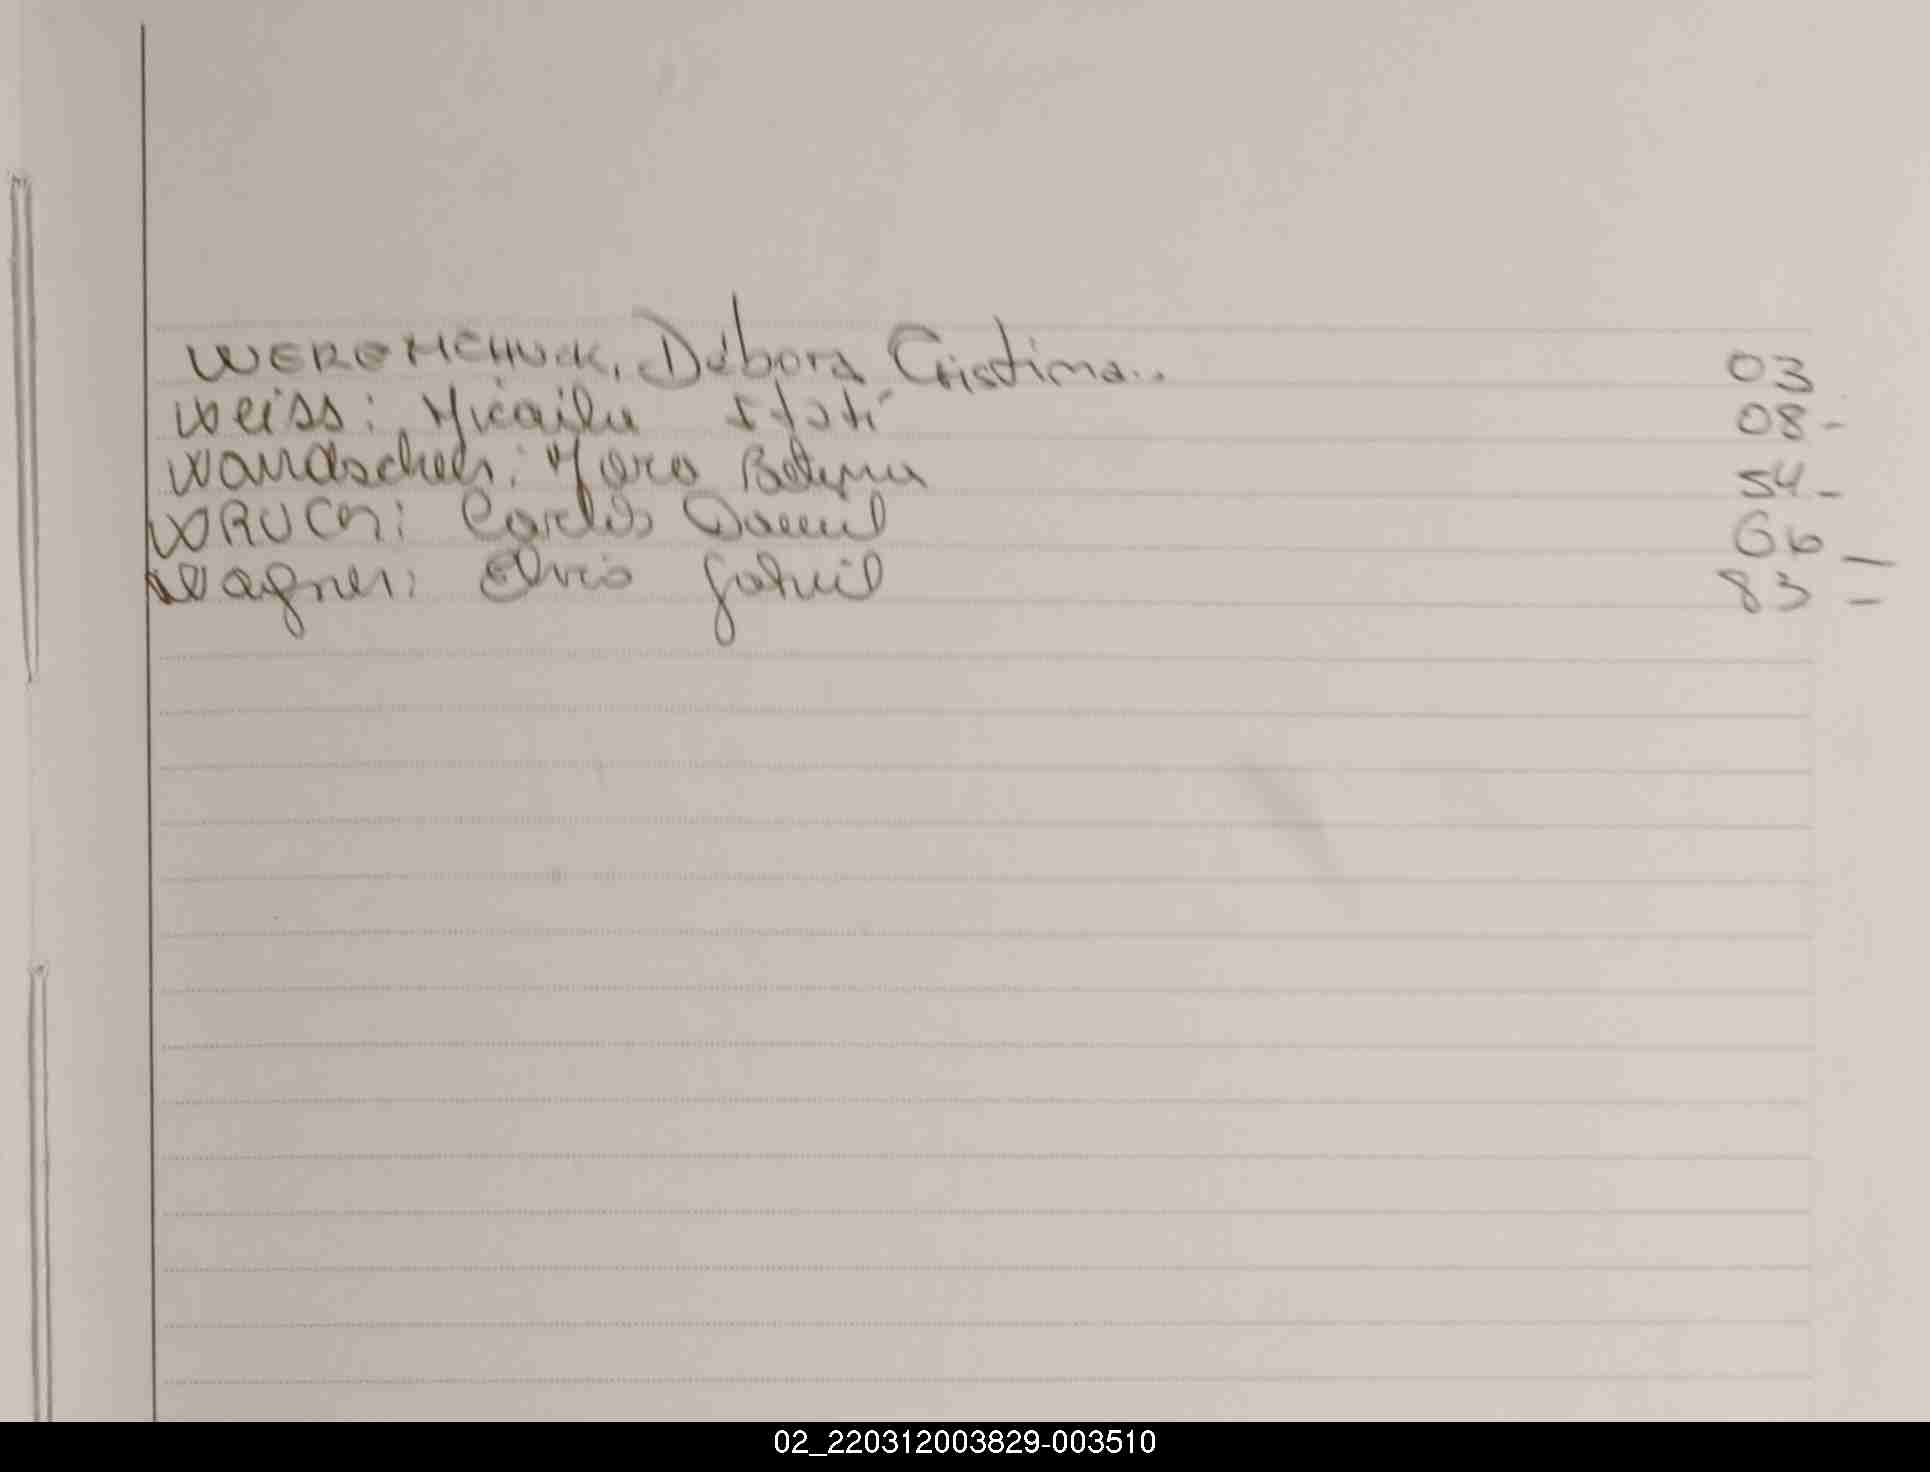 WEREMCHUCK, Débora Cristina.. 03
Weiss: Micaila Itatí 08-
Wandscher: Mara Betina 54-
WRUCK: Carlos Daniel 66-
Wagner: Elvio Gabriel 83-
02_220312003829-003510